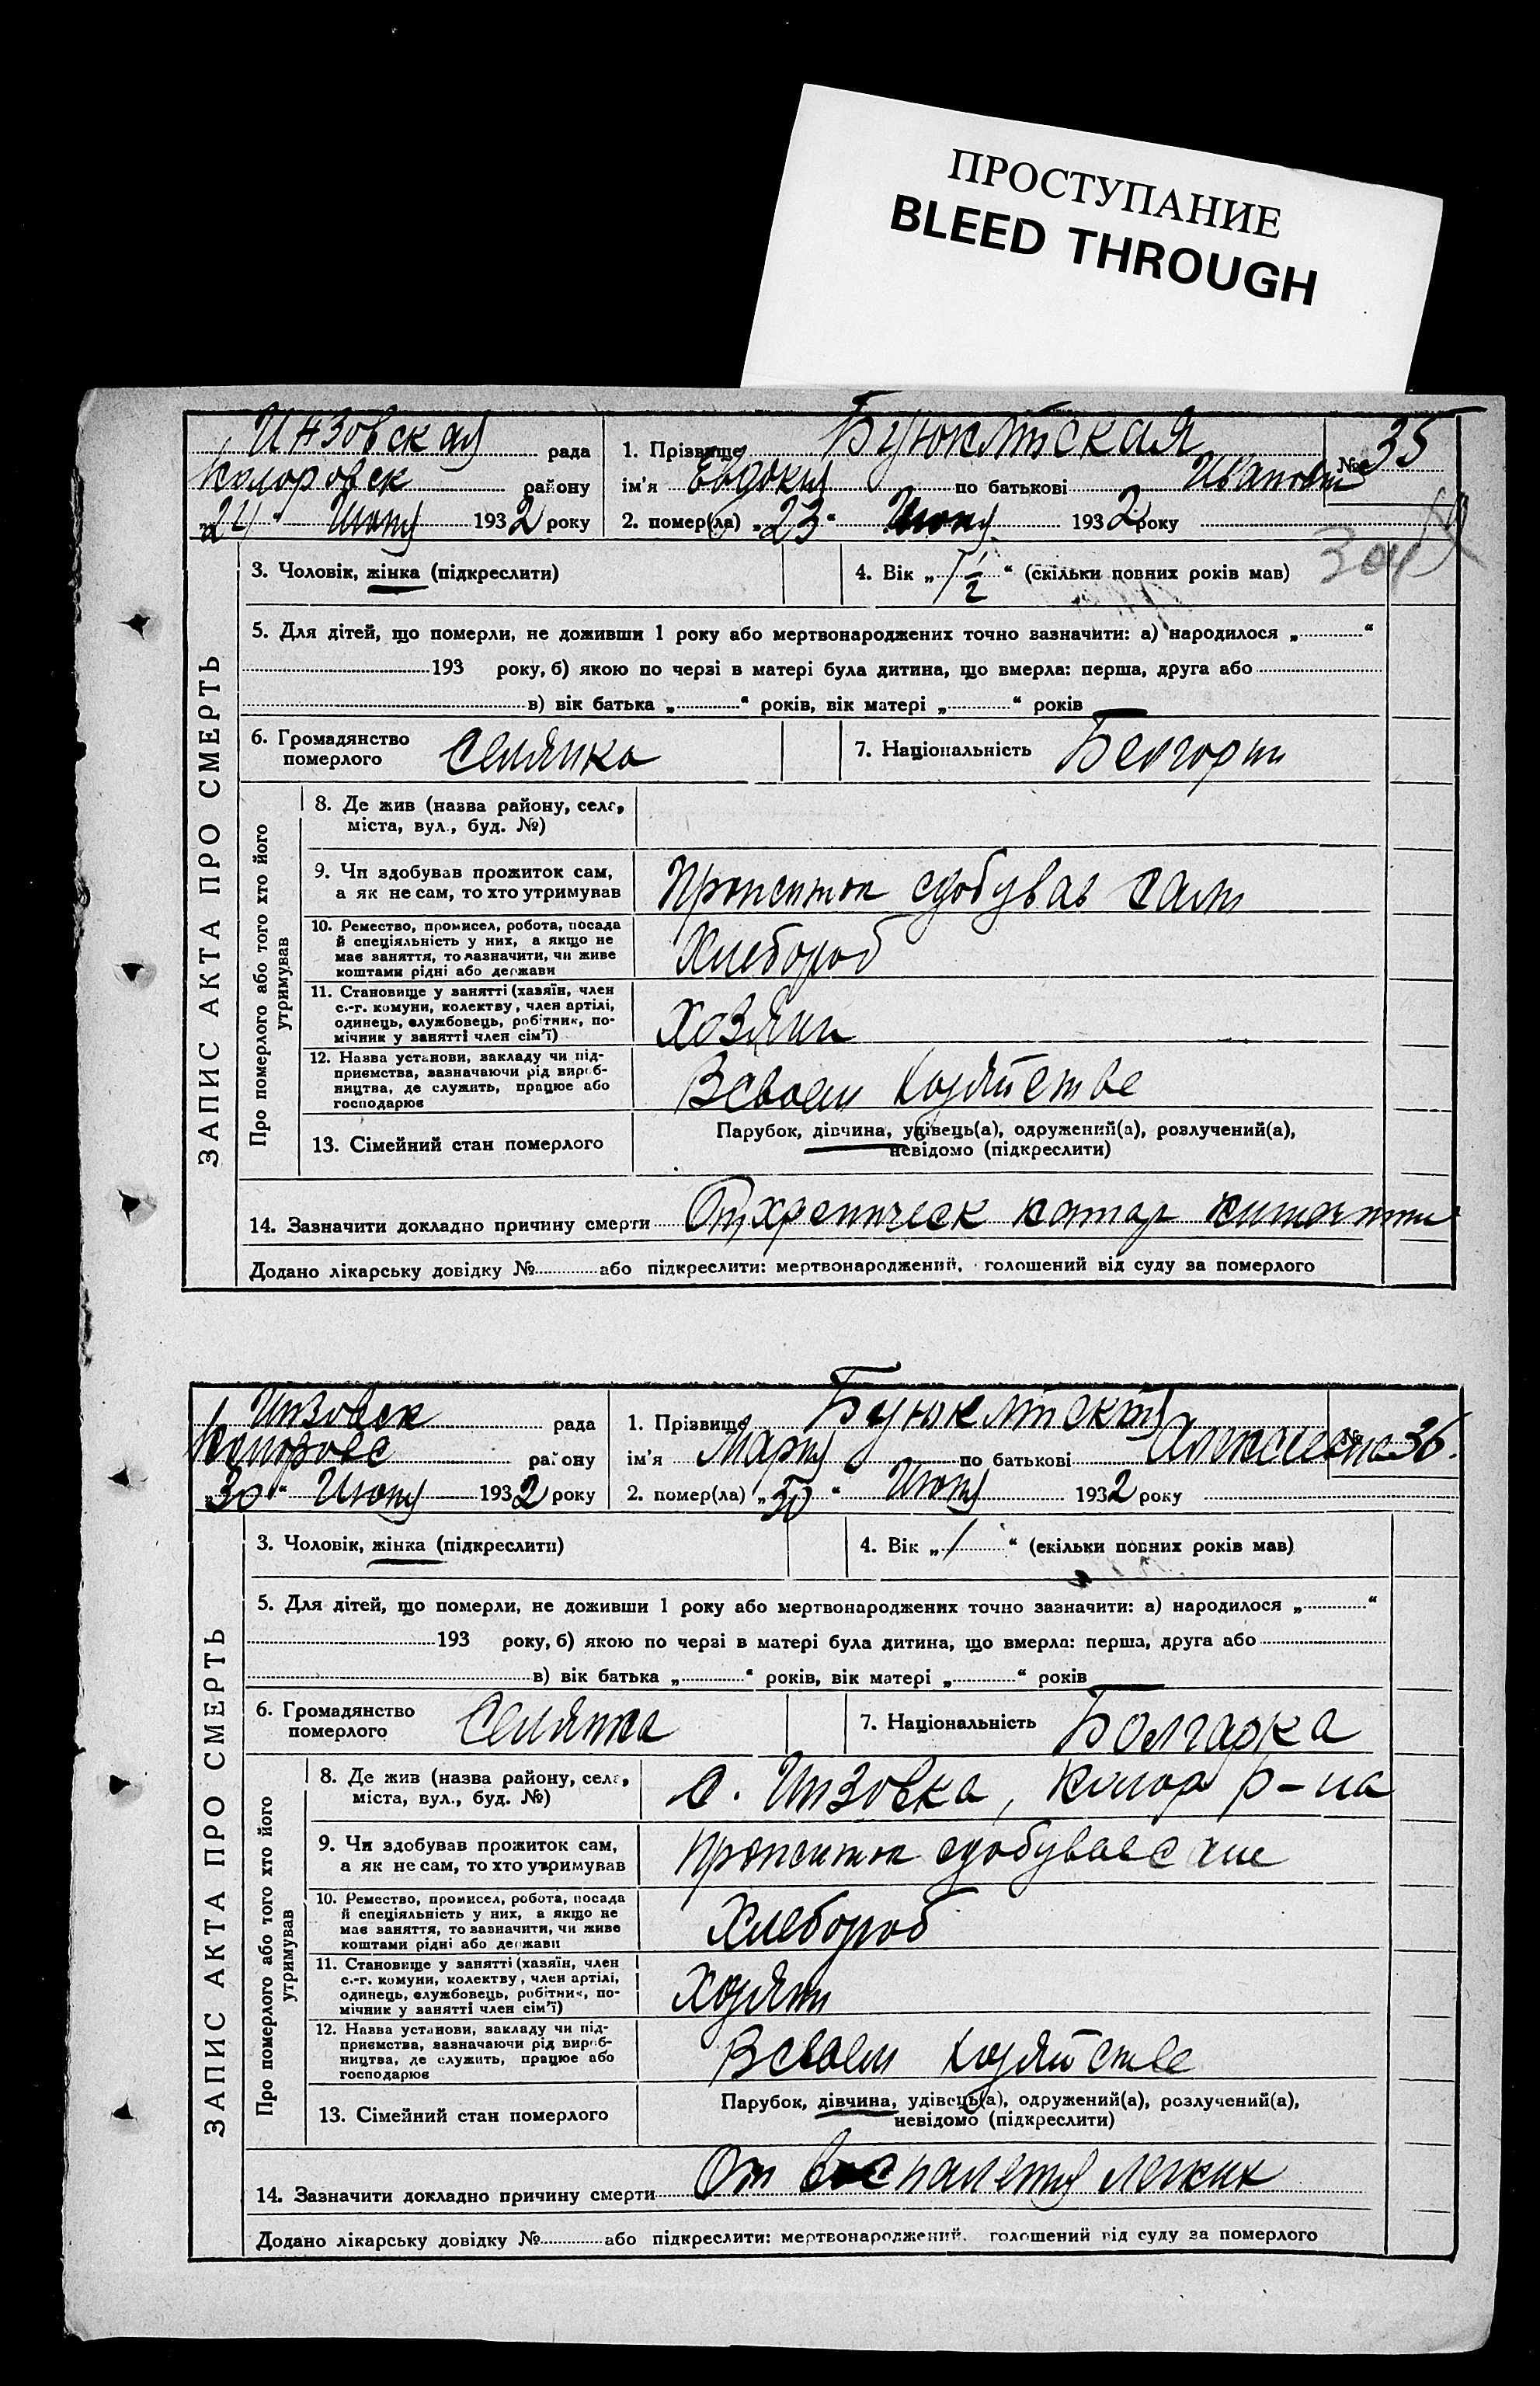 ПРОСТУПАНИЕ
BLEED THROUGH
Инзовская рада
Коларовск району
"24" Июня 1932 року
1. Прізвище Буюклійская
№ 35
ім'я Евдокия по батькові Ивановна
2. помер(ла) "23" Июня 1932 року
3. Чоловік, жінка (підкреслити)
4. Вік „1 1/2“ (скільки повних років мав)
5. Для дітей, що померли, не доживши 1 року або мертвонароджених точно зазначити: а) народилося „ “
193 року, б) якою по черзі в матері була дитина, що вмерла: перша, друга або
в) вік батька „ “ років, вік матері „ “ років
6. Громадянство померлого Селянка
7. Національність
ЗАПИС АКТА ПРО СМЕРТЬ
Про померлого або того хто його утримував
8. Де жив (назва району, села,
міста, вул., буд. №)
9. Чи здобував прожиток сам,
а як не сам, то хто утримував
Прожиток здобував сам
10. Ремество, промисел, робота, посада
й спеціяльність у них, а якщо не
має заняття, то зазначити, чи живе
коштами рідні або держави
Хлебороб
11. Становище у занятті (хазяїн, член
с.-г. комуни, колективу, член артілі,
одинець, службовець, робітник, по-
мічник у занятті член сім'ї)
Хозяин
12. Назва установи, закладу чи під-
приємства, зазначаючи рід вироб-
ництва, де служить, працює або
господарює
В своем хозяйстве
13. Сімейний стан померлого
Парубок, дівчина, удівець(а), одружений(а), розлучений(а),
невідомо (підкреслити)
14. Зазначити докладно причину смерти От хроническ катар
Додано лікарську довідку № або підкреслити: мертвонароджений, голошений від суду за померлого
Инзовск рада
Коларовс району
"30" Июня 1932 року
1. Прізвище
№ 36.
ім'я Мария по батькові Алексеевна
2. помер(ла) "30" Июня 1932 року
3. Чоловік, жінка (підкреслити)
4. Вік „1“ (скільки повних років мав)
5. Для дітей, що померли, не доживши 1 року або мертвонароджених точно зазначити: а) народилося „ “
193 року, б) якою по черзі в матері була дитина, що вмерла: перша, друга або
в) вік батька „ “ років, вік матері „ “ років
6. Громадянство померлого Селянка
7. Національність Болгарка
ЗАПИС АКТА ПРО СМЕРТЬ
Про померлого або того хто його утримував
8. Де жив (назва району, села,
міста, вул., буд. №)
с. Инзовка, Колар р-на
9. Чи здобував прожиток сам,
а як не сам, то хто утримував
Прожиток здобувае сам
10. Ремество, промисел, робота, посада
й спеціяльність у них, а якщо не
має заняття, то зазначити, чи живе
коштами рідні або держави
Хлебороб
11. Становище у занятті (хазяїн, член
с.-г. комуни, колективу, член артілі,
одинець, службовець, робітник, по-
мічник у занятті член сім'ї)
Хозяин
12. Назва установи, закладу чи під-
приємства, зазначаючи рід вироб-
ництва, де служить, працює або
господарює
В своем хозяйстве
13. Сімейний стан померлого
Парубок, дівчина, удівець(а), одружений(а), розлучений(а),
невідомо (підкреслити)
14. Зазначити докладно причину смерти От воспаления легких
Додано лікарську довідку № або підкреслити: мертвонароджений, голошений від суду за померлого